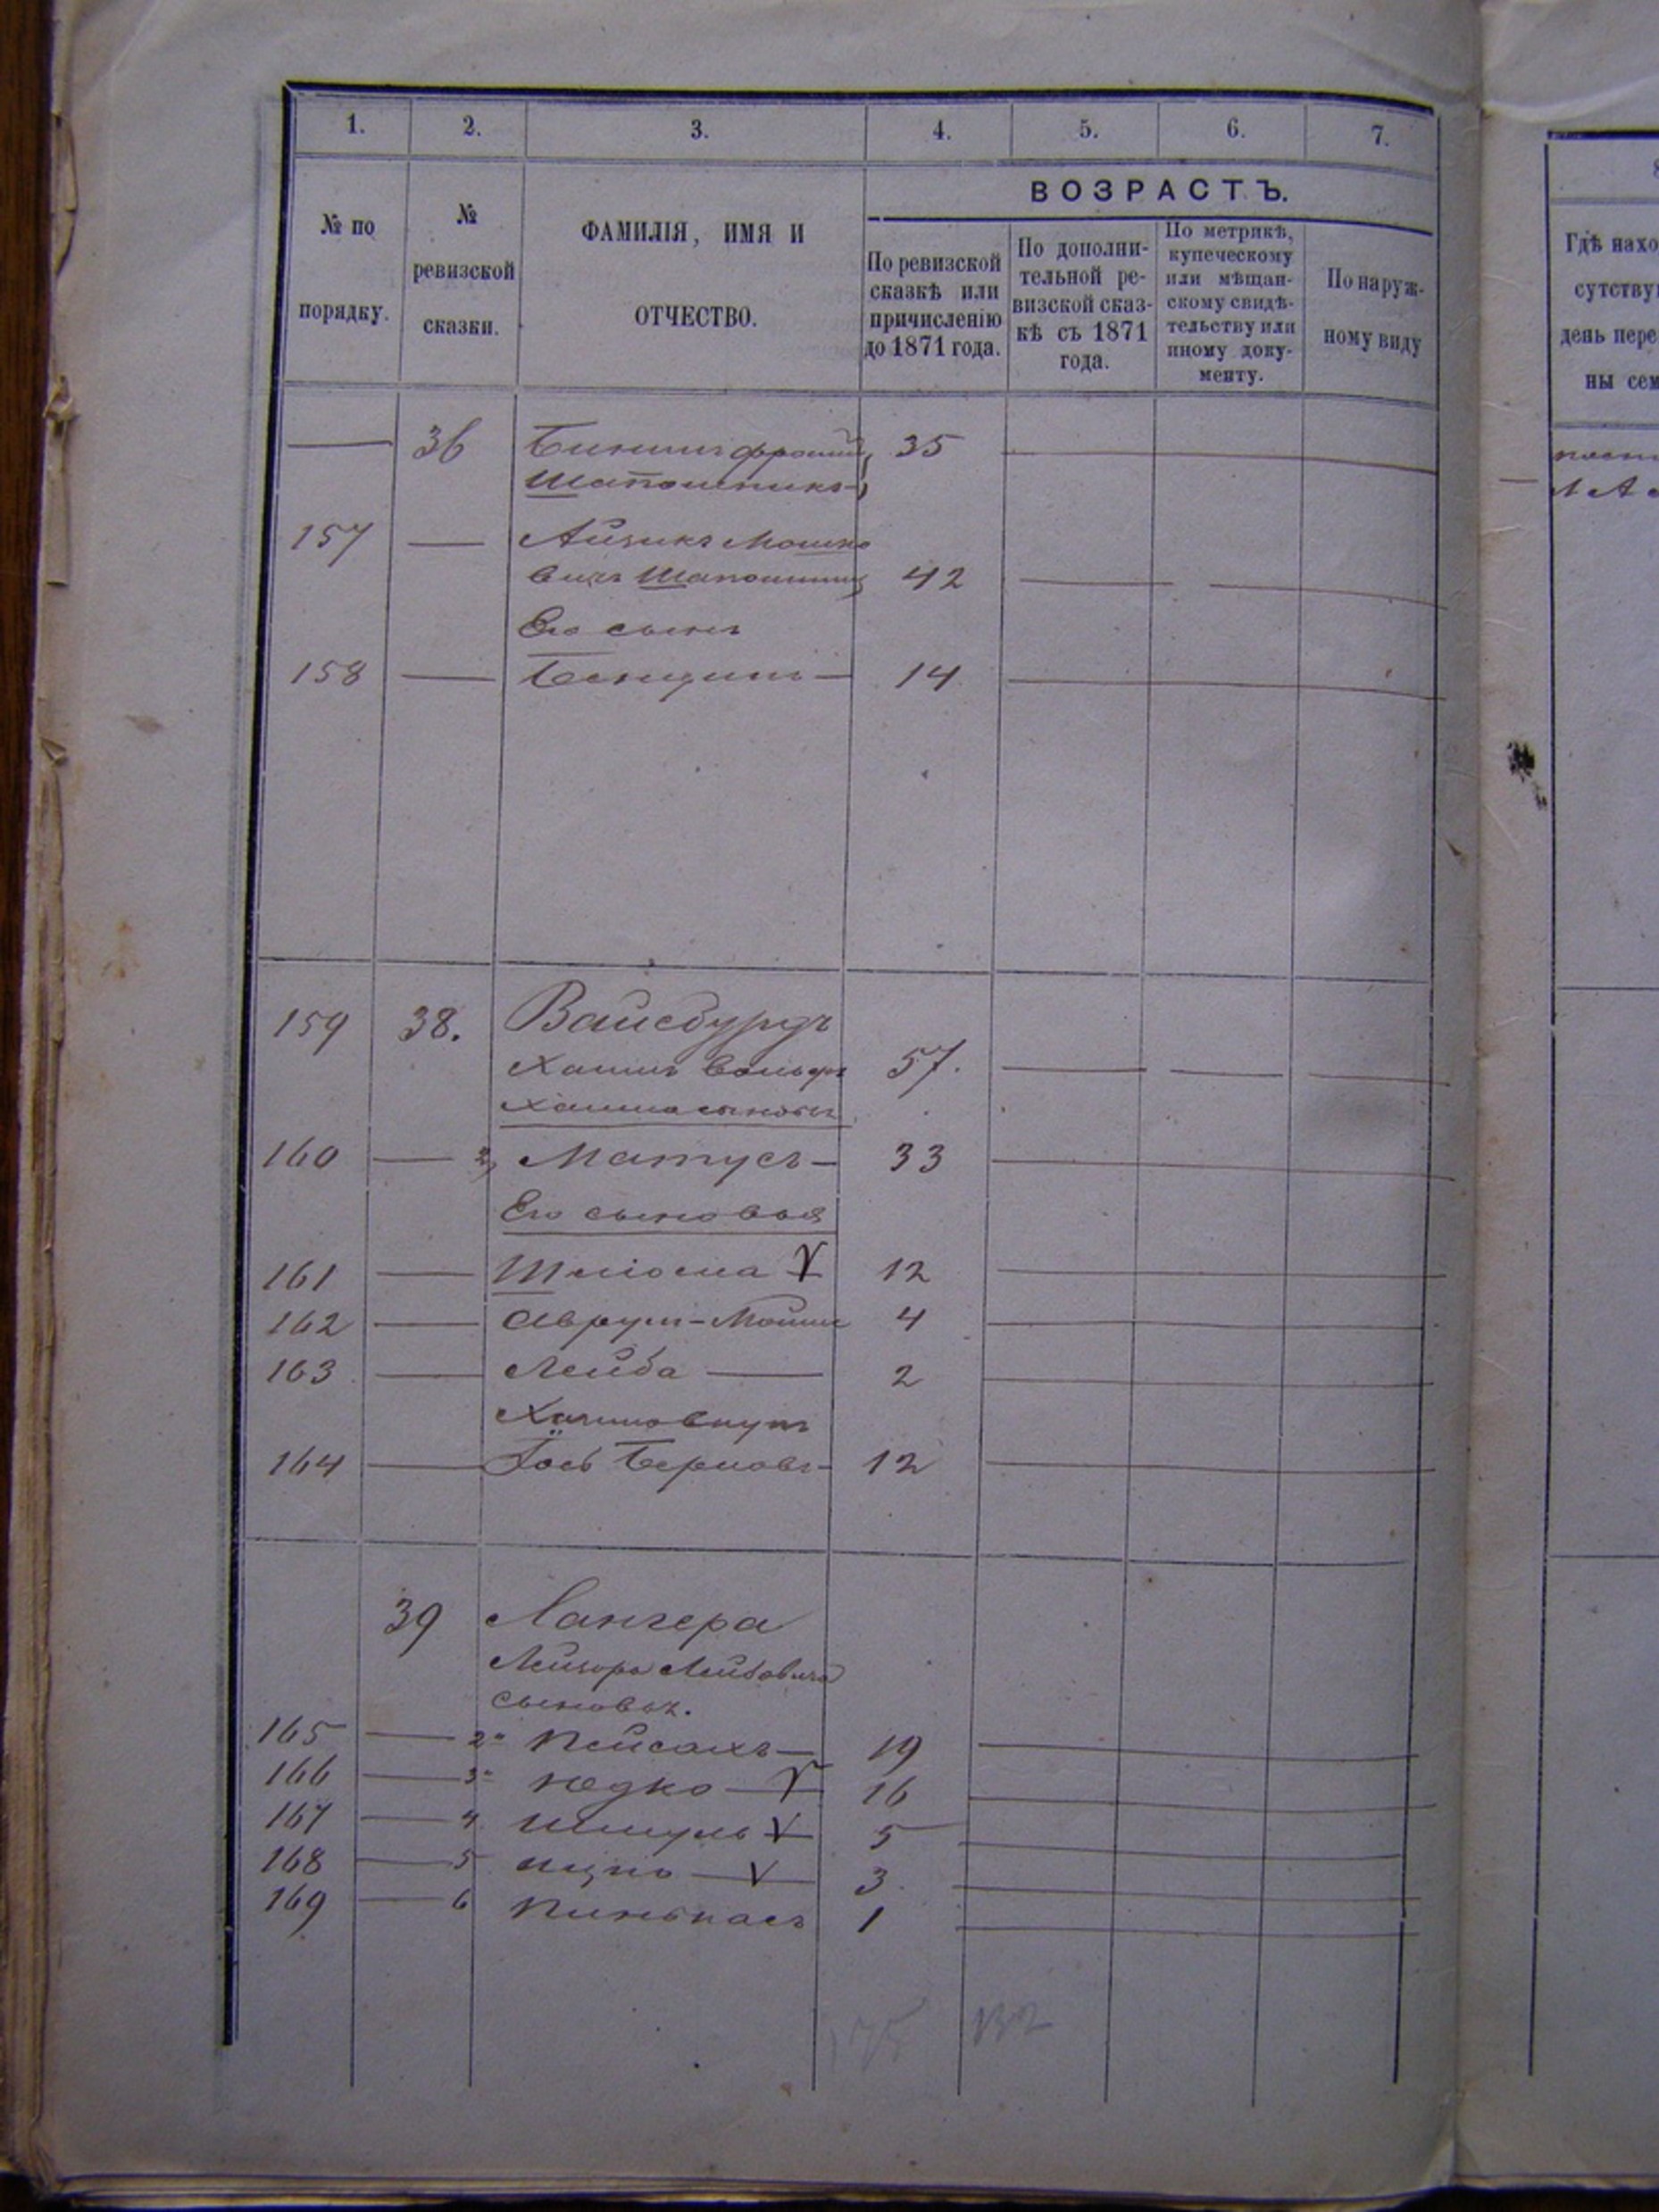 1. 2. 3. 4. 5. 6. 7.
№ по порядку.
№ ревизской сказки.
ФАМИЛІЯ, ИМЯ И
ОТЧЕСТВО.
ВОЗРАСТЪ.
По ревизской
сказкѣ или
причисленію
до 1871 года.
По дополни-
тельной ре-
визской сказ-
кѣ съ 1871
года.
По метрикѣ,
купеческому
или мѣщан-
скому свидѣ-
тельству или
иному доку-
менту.
По наруж-
ному виду
Гдѣ нахо
сутству
день пере
ны сем
36 35
157 — Айзикъ Мошко
вичъ 42
Его сынъ
158 — 14
159 38. Вайсбурдъ
Хаимъ Вольфъ 57.
Хаима сыновья
160 — 2, Матусъ — 33
Его сыновья
161 — Шлiома 12
162 — Аврум-Мошко 4
163 — Лейба — 2
Хаимов внукъ
164 — Іось Берковъ — 12
39 Лангера
Лейзора Лейбовича
сыновья.
165 — 2 Пейсахъ — 19
166 — 3 16
167 — 4 Шмуль 5
168 — 5 Ицко — 3.
169 — 6 Пинькасъ 1